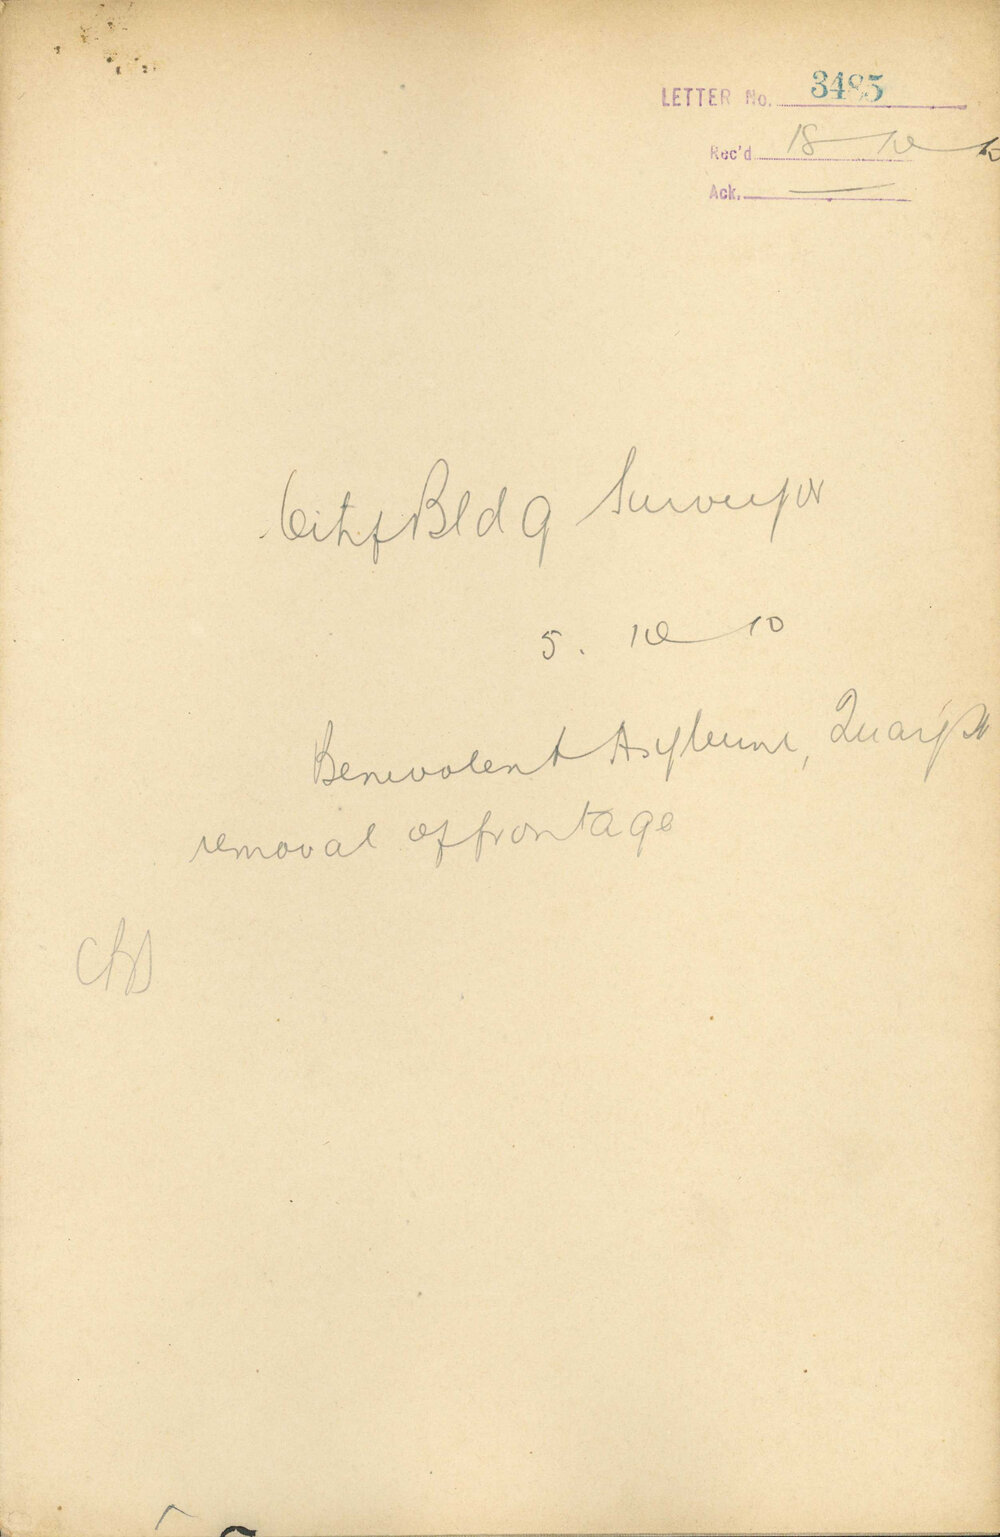 LETTER No. 3485
Rec'd 18 10
Ack. —
City Bldg Surveyor
5. 10 10
Benevolent Asylum, Quay St
removal of frontage